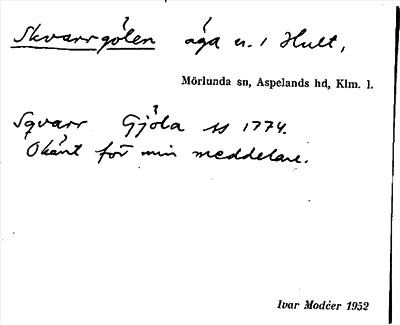 Skvarrgölen äga u. 1 Hult,
Mörlunda sn, Aspelands hd, Klm. l.
Sqvarr Gjöla ss 1774.
Okänt för min meddelare.
Ivar Modéer 1952